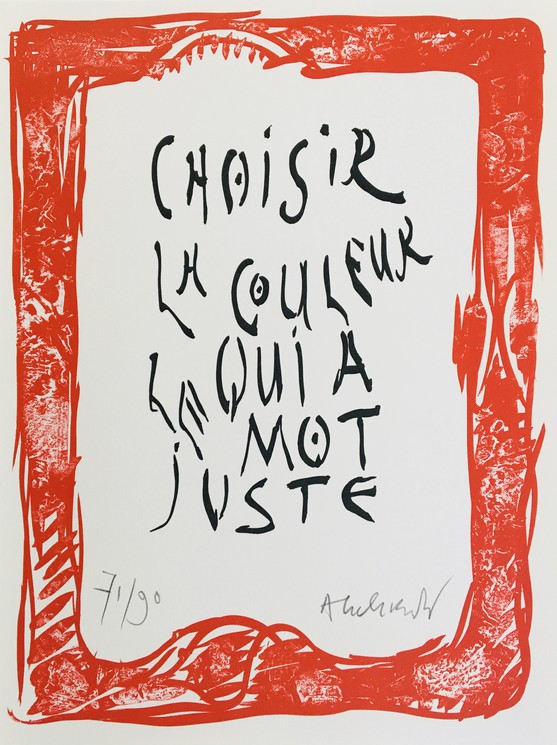 CHOiSiR
LA COULEUR
QUi A
LE MOT
jUSTE
71/90